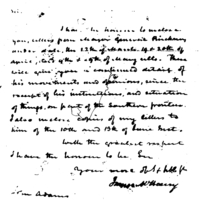 Sir,
I have the honour to enclose
you, letters from Major General Pinckney
under date, the 12th of March, 4th & 20th of
April, and 4th & 9th of May ulto. These
will give you a confirmed detail of
his movements and opinions, since the
receipt of his instructions, and situation
of things, on part of the Southern frontier.
I also enclose copies of my letters to
him of the 10th and 13th of June Inst.
With the greatest respect
I have the honour to be Sir
Your most ob. hble St
James McHenry
John Adams